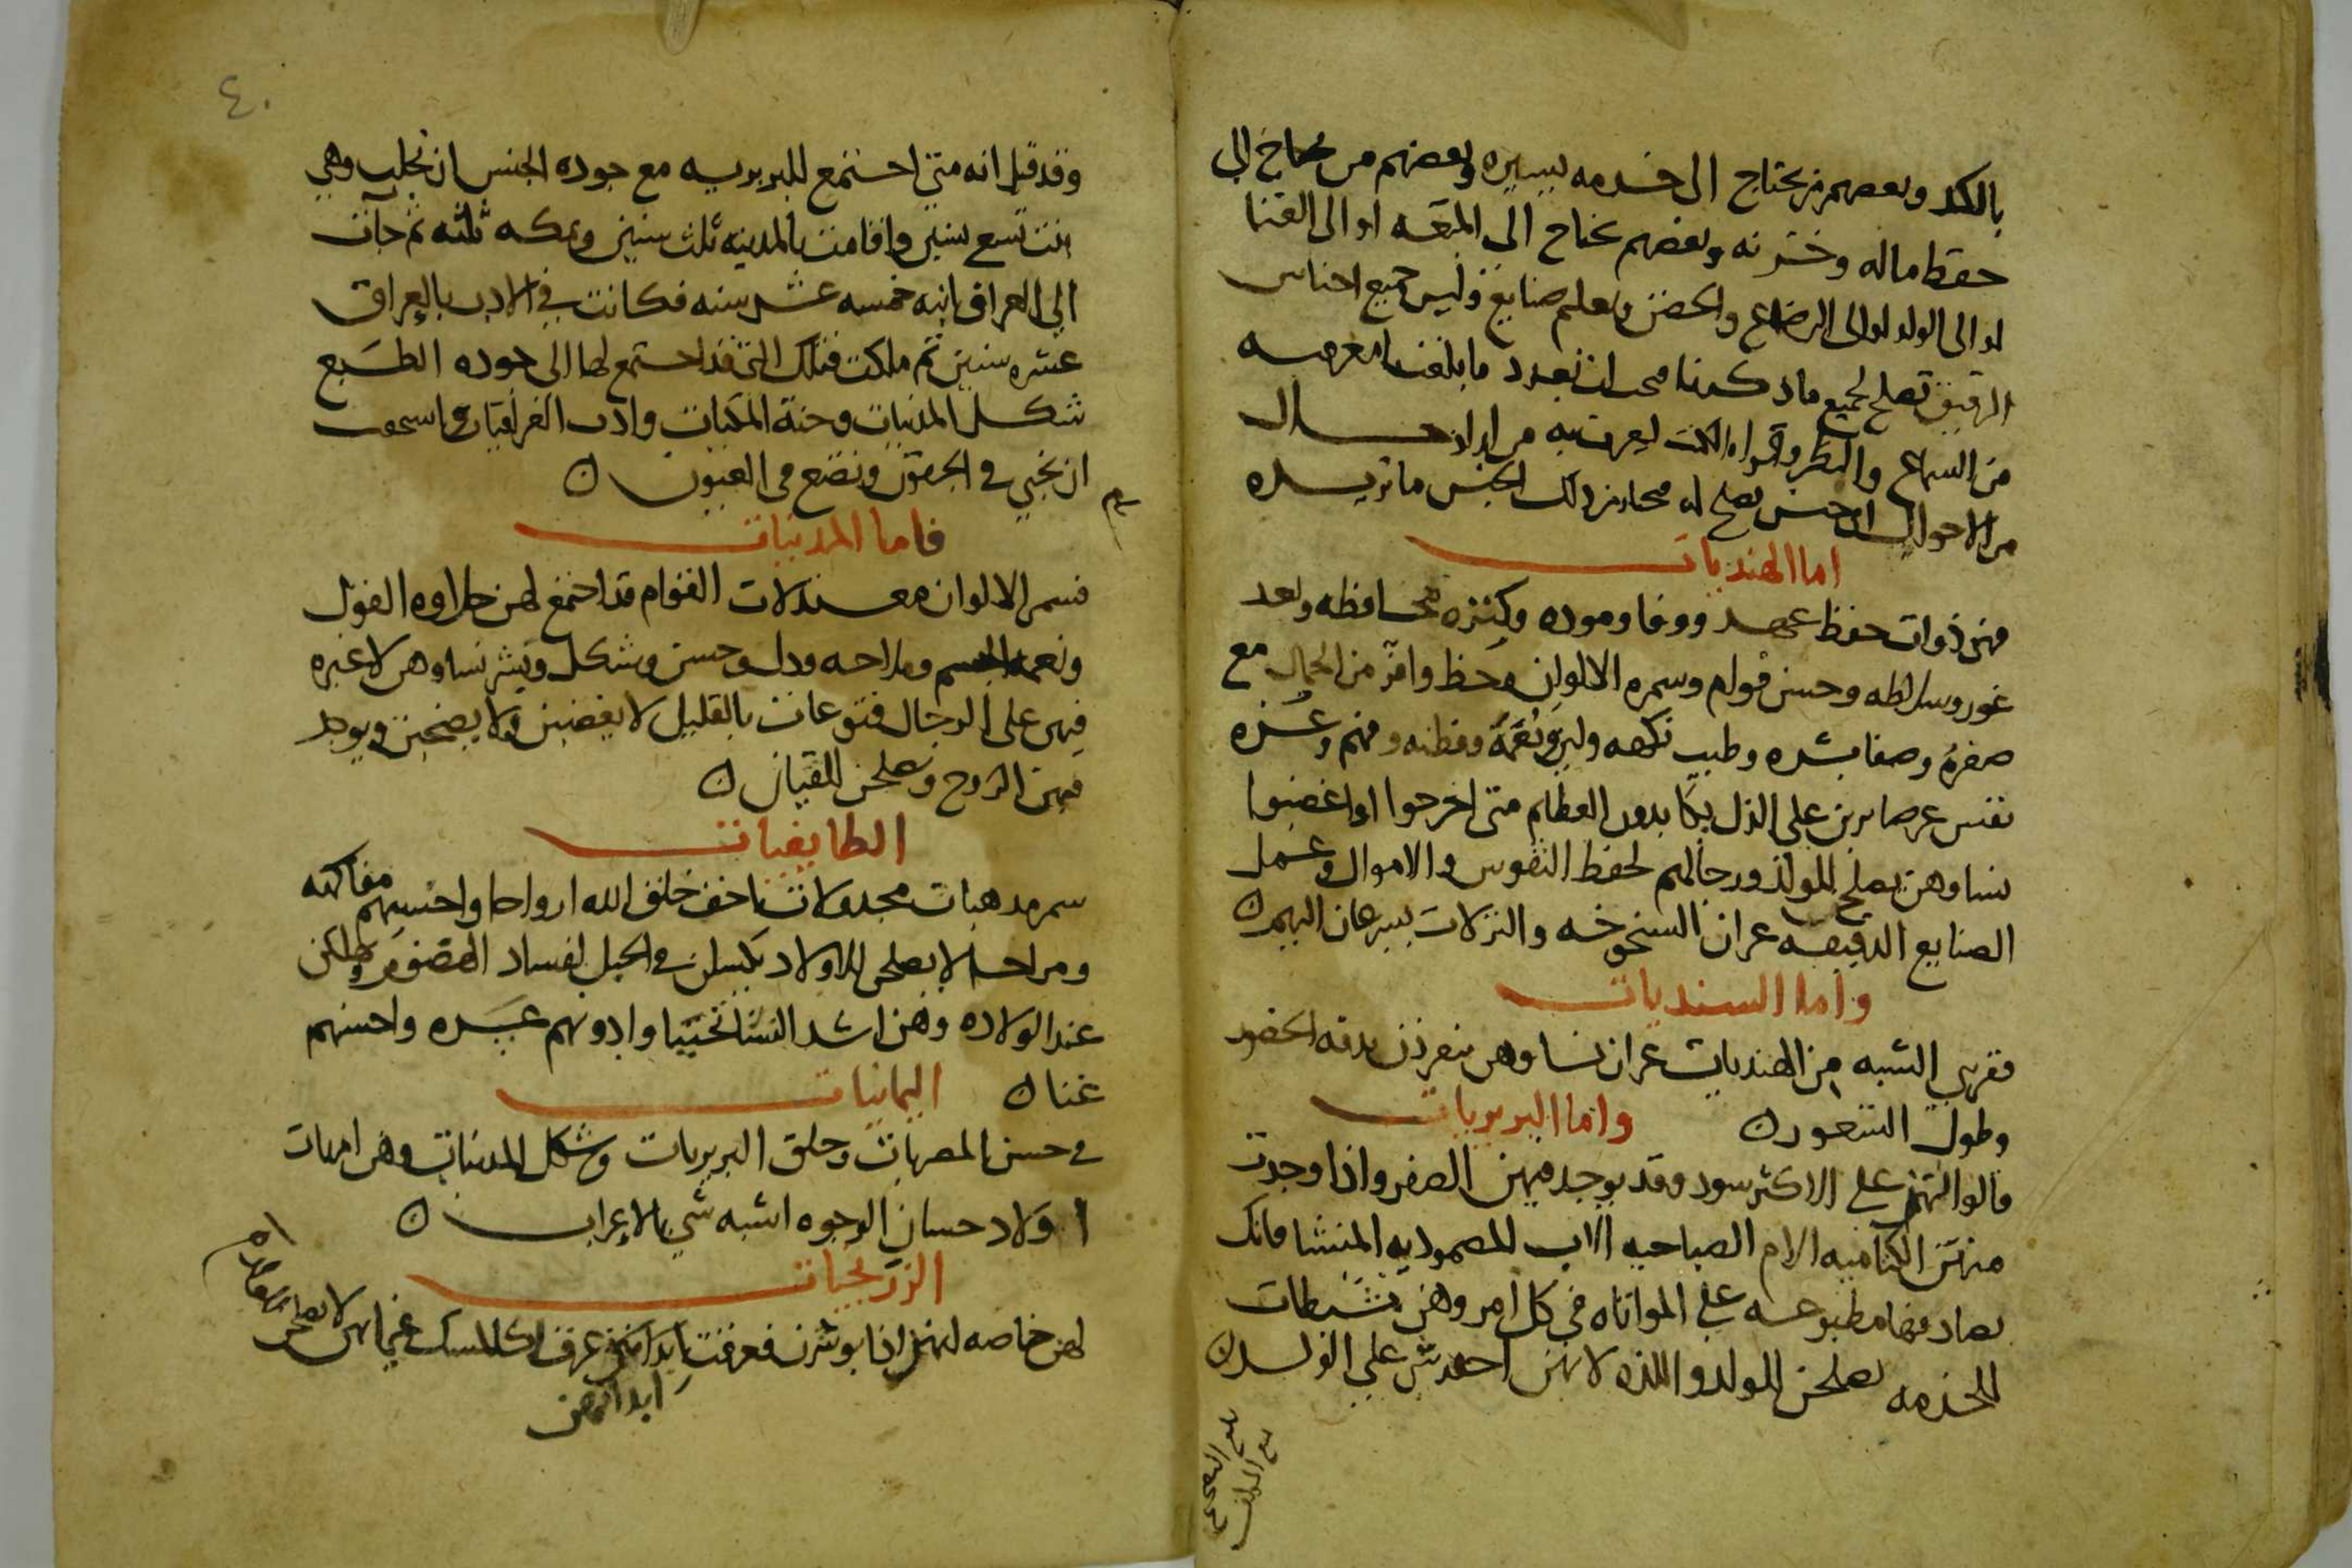 بالكد وبعضهم من يحتاج الى خدمه يسيره وبعضهم من يحتاج الى
حفظ ماله وخزنه وبعضهم يحتاج الى المتعه او الى الغنا
او الى الولد او الى الرضاع والحضن وتعلم صنايع وليس جميع اجناس
الرقيق تصلح لجميع ما ذكرنا فيجب ان نعدد ما بلغت بنا معرفته
من السماع والنظر وقراه الكتب ليعرف به من اراد حال
من الاحوال اي جنس يصلح له فيختار من ذلك الجنس ما يريده
اما الهنديات
فهن ذوات حفظ عهد ووفا وموده وكثره محافظه وبعد
غور وسلاطه وحسن قوام وسمره الالوان وحظ وافر من الجمال مع
صفره وصفا بشره وطيب نكهه ولين ونعمة وفطنه وفهم وعزه
نفس غير صابرين على الذل يكابدون العظايم متى احرجوا او اغضبوا
نساوهن يصلح للولد ورجالهم لحفظ النفوس والاموال وعمل
الصنايع الدقيقه غير ان الشيخوخه والنزلات يسرعان اليهم
واما السنديات
فقريبي الشبه من الهنديات غير ان نساوهن ينفردن بدقه الخصور
وطول الشعور واما البربريات
قالوا انهن على الاكثر سود وقد يوجد فيهن الصفر واذا وجدت
منهن الكتاميه الام الصنهاجيه الاب المصموديه المنشا فانك
تصادفها مطبوعه على المواتاه في كل امر وهن نشيطات
للخدمه يصلحن للولد واللذه لانهن احدب شي على الولد
بلغ
٤٠
وقد قيل انه متى اجتمع للبربريه مع جوده الجنس ان تجلب وهي
بنت تسع سنين واقامت بالمدينه ثلث سنين وبمكه ثلثه ثم جات
الى العراق ابنه خمسه عشر سنه فكانت في الادب بالعراق
عشره سنين ثم ملكت فتلك التي قد اجتمع لها الى جوده الطبع
شكل المدنيات وخنث المكيات وادب العراقيات واستحقت
ان تخبي في الجفون وتضع في العيون
فاما المدنيات
فسمر الالوان معتدلات القوام قد اجتمع لهن حلاوه القول
ونعمة الجسم وملاحه ودل وحسن وشكل وبشر نساوهن لا غيره
فيهن على الرجال قنوعات بالقليل لا يغضبن ولا يصخبن ويوجد
فيهن الزوج ويصلحن للقيان
الطايفيات
سمر مذهبات مجدولات اخف خلق الله ارواحا واحسنهم مفاكهه
ومزاحا لا يصلحن للاولاد يكسلن في الحبل ويهلكن
عند الولاده وهن اشد النسا تحببا وادومهم عشره واحسنهم
غنا اليمانيات
في حسن المصريات وخلق البربريات وشكل المدنيات وهن امهات
اولاد حسان الوجوه اشبه شي بالاعراب
الزرنجيات
لهن خاصه انهن اذا بوشرن فعرقت ابدانهن عرف كالمسك لا يصلحن
ابدانهن